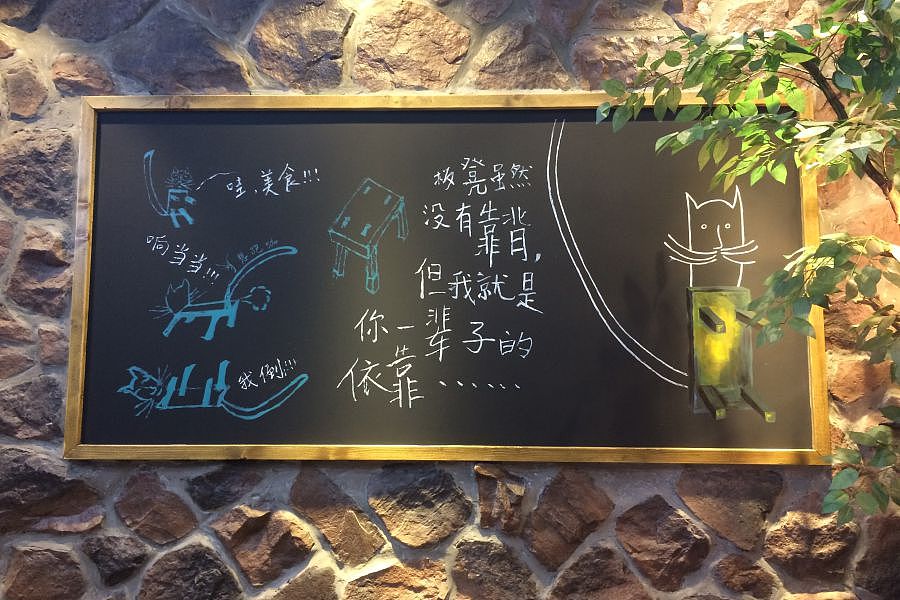 哇,美食!!!
响当当!!!
我倒!!!
板凳虽然
没有靠背,
但我就是
你一辈子的
依靠······